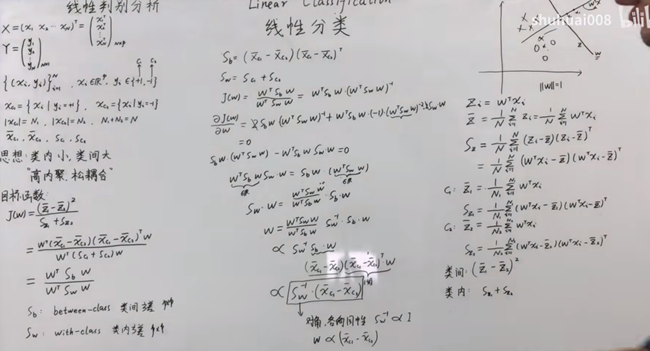 线性判别分析
X = (x₁ x₂ … x_N)ᵀ = (x₁ᵀ x₂ᵀ ⋮ x_Nᵀ)_{N×p}
Y = (y₁ y₂ ⋮ y_N)_{N×1}
C₁ C₂
{(xᵢ, yᵢ)}ᵢ₌₁ᴺ, xᵢ∈ℝᵖ, yᵢ∈{+1, -1}
x_{C₁} = {xᵢ | yᵢ=+1}, x_{C₂} = {xᵢ | yᵢ=-1}
|x_{C₁}| = N₁, |x_{C₂}| = N₂, N₁+N₂ = N
x̄_{C₁}, x̄_{C₂}, S_{C₁}, S_{C₂}
思想: 类内小, 类间大
"高内聚, 松耦合"
目标函数:
J(w) = (z̄₁-z̄₂)² / (S_{z₁}+S_{z₂})
= wᵀ(x̄_{C₁}-x̄_{C₂})(x̄_{C₁}-x̄_{C₂})ᵀw / wᵀ(S_{C₁}+S_{C₂})w
= wᵀ S_b w / wᵀ S_w w
S_b: between-class 类间方差 p×p
S_w: with-class 类内方差 p×p
Linear Classification
线性分类
S_b = (x̄_{C₁} - x̄_{C₂})(x̄_{C₁} - x̄_{C₂})ᵀ
S_w = S_{C₁} + S_{C₂}
J(w) = wᵀS_b w / wᵀS_w w = wᵀS_b w · (wᵀS_w w)⁻¹
∂J(w)/∂w = 2S_b w·(wᵀS_w w)⁻¹ + wᵀS_b w·(-1)·(wᵀS_w w)⁻²·2S_w w
= 0
S_b w·(wᵀS_w w) - wᵀS_b w S_w w = 0
wᵀS_b w S_w w = S_b w (wᵀS_w w)
∈ℝ ∈ℝ
S_w·w = wᵀS_w w / wᵀS_b w · S_b·w
w = wᵀS_w w / wᵀS_b w · S_w⁻¹·S_b·w
∝ S_w⁻¹·S_b·w
(x̄_{C₁}-x̄_{C₂})(x̄_{C₁}-x̄_{C₂})ᵀw
∝ S_w⁻¹·(x̄_{C₁}-x̄_{C₂})
对角, 各向同性 S_w⁻¹ ∝ I
w ∝ (x̄_{C₁}-x̄_{C₂})
shuhuai008
bilibili
w
||w||=1
zᵢ = wᵀxᵢ
z̄ = 1/N Σᵢ₌₁ᴺ zᵢ = 1/N Σᵢ₌₁ᴺ wᵀxᵢ
S_z = 1/N Σᵢ₌₁ᴺ (zᵢ-z̄)(zᵢ-z̄)ᵀ
= 1/N Σᵢ₌₁ᴺ (wᵀxᵢ-z̄)(wᵀxᵢ-z̄)ᵀ
C₁: z̄₁ = 1/N₁ Σᵢ₌₁^{N₁} wᵀxᵢ
S_{z₁} = 1/N₁ Σᵢ₌₁^{N₁} (wᵀxᵢ-z̄₁)(wᵀxᵢ-z̄₁)ᵀ
C₂: z̄₂ = 1/N₂ Σᵢ₌₁^{N₂} wᵀxᵢ
S_{z₂} = 1/N₂ Σᵢ₌₁^{N₂} (wᵀxᵢ-z̄₂)(wᵀxᵢ-z̄₂)ᵀ
类间: (z̄₁-z̄₂)²
类内: S_{z₁}+S_{z₂}